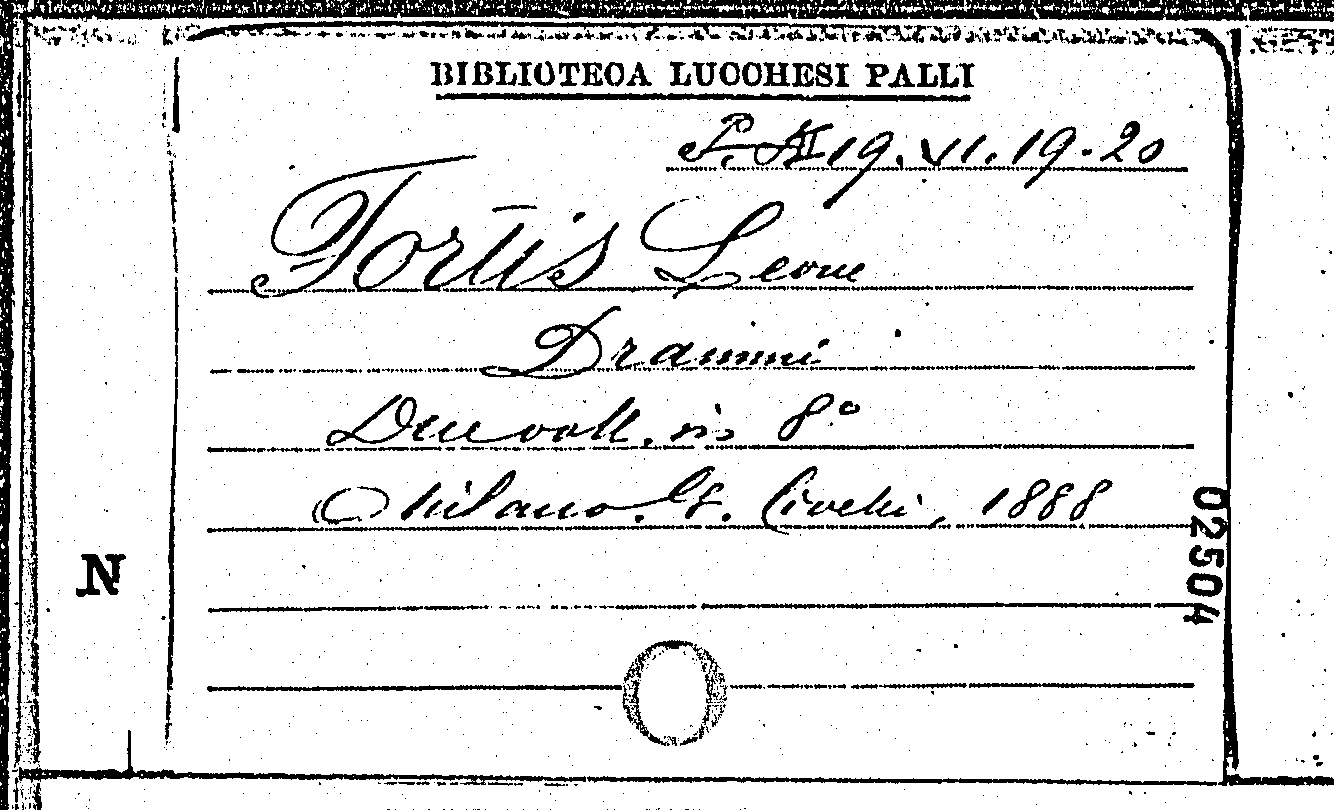 BIBLIOTECA LUCCHESI PALLI
P. XI 19. VI. 19-20
Fortis Leone
Drammi
Due voll. in 8°
Milano. G. Civelli, 1888
02504
N